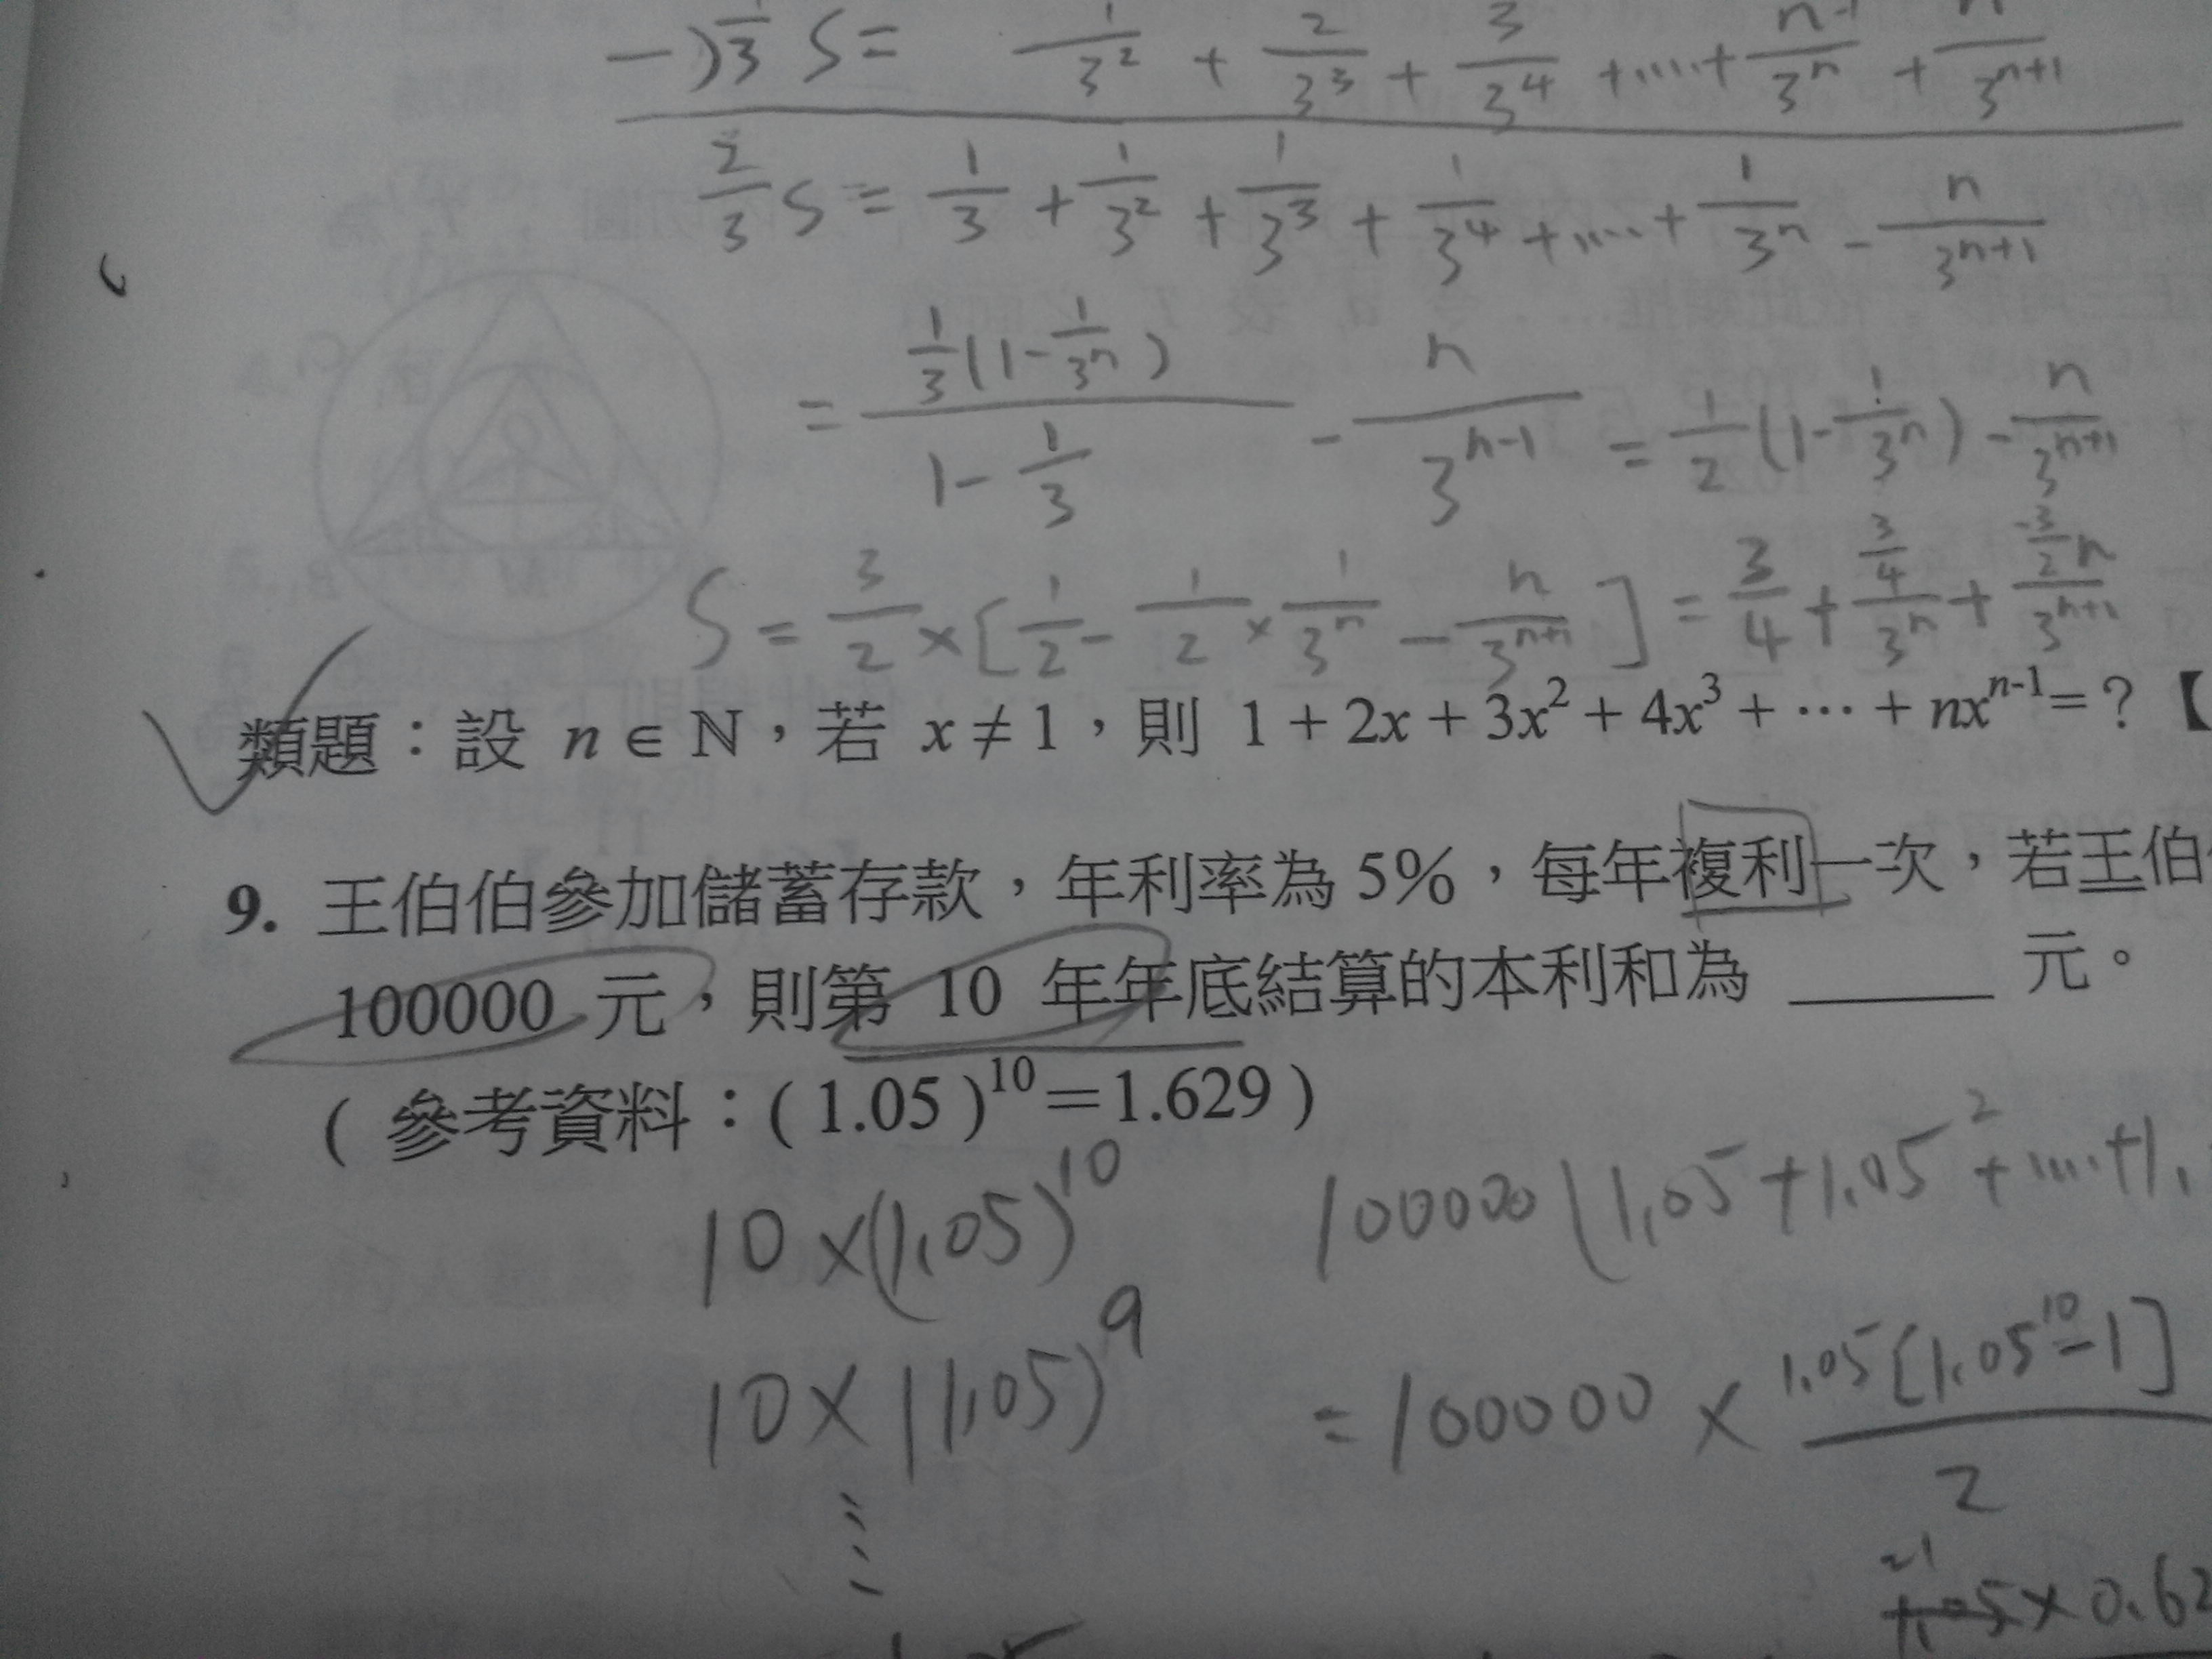 -) 1/3 S = 1/3² + 2/3³ + 3/3⁴ + ..... + n-1/3ⁿ + n/3ⁿ⁺¹
2/3 S = 1/3 + 1/3² + 1/3³ + 1/3⁴ + ..... + 1/3ⁿ - n/3ⁿ⁺¹
= 1/3(1-1/3ⁿ) / 1-1/3 - n/3ⁿ⁻¹ = 1/2 (1-1/3ⁿ) - n/3ⁿ⁺¹
S = 3/2 × [1/2 - 1/2 × 1/3ⁿ - n/3ⁿ⁺¹] = 3/4 + 3/4/3ⁿ + -3/2 n/3ⁿ⁺¹
類題：設 n ∈ ℕ，若 x ≠ 1，則 1 + 2x + 3x² + 4x³ + ⋯ + nxⁿ⁻¹ = ? 【
9. 王伯伯參加儲蓄存款，年利率為 5%，每年複利一次，若王伯
100000 元，則第 10 年年底結算的本利和為 ______ 元。
( 參考資料：( 1.05 )¹⁰＝1.629 )
10 × (1.05)¹⁰ 100000 (1.05 + 1.05² + ..... + 1.
10 × (1.05)⁹ = 100000 × 1.05[1.05¹⁰-1] / 2
⋮
21
1.05 × 0.62